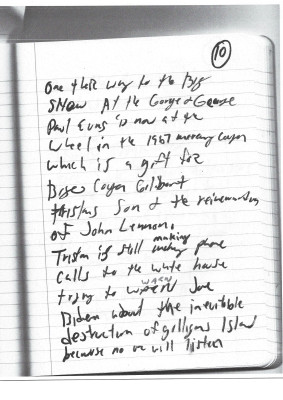 10
one their way to the Big
Show At the George of George
Paul Evans is now at the
wheel in the 1967 mercury Cougar
which is a gift for
Cougar Colibant
son & the
of John Lennon.
Tristan is still making phone
calls to the white house
trying to warn Joe
Biden about the inevitible
destruction of gilligans Island
because no one will listen